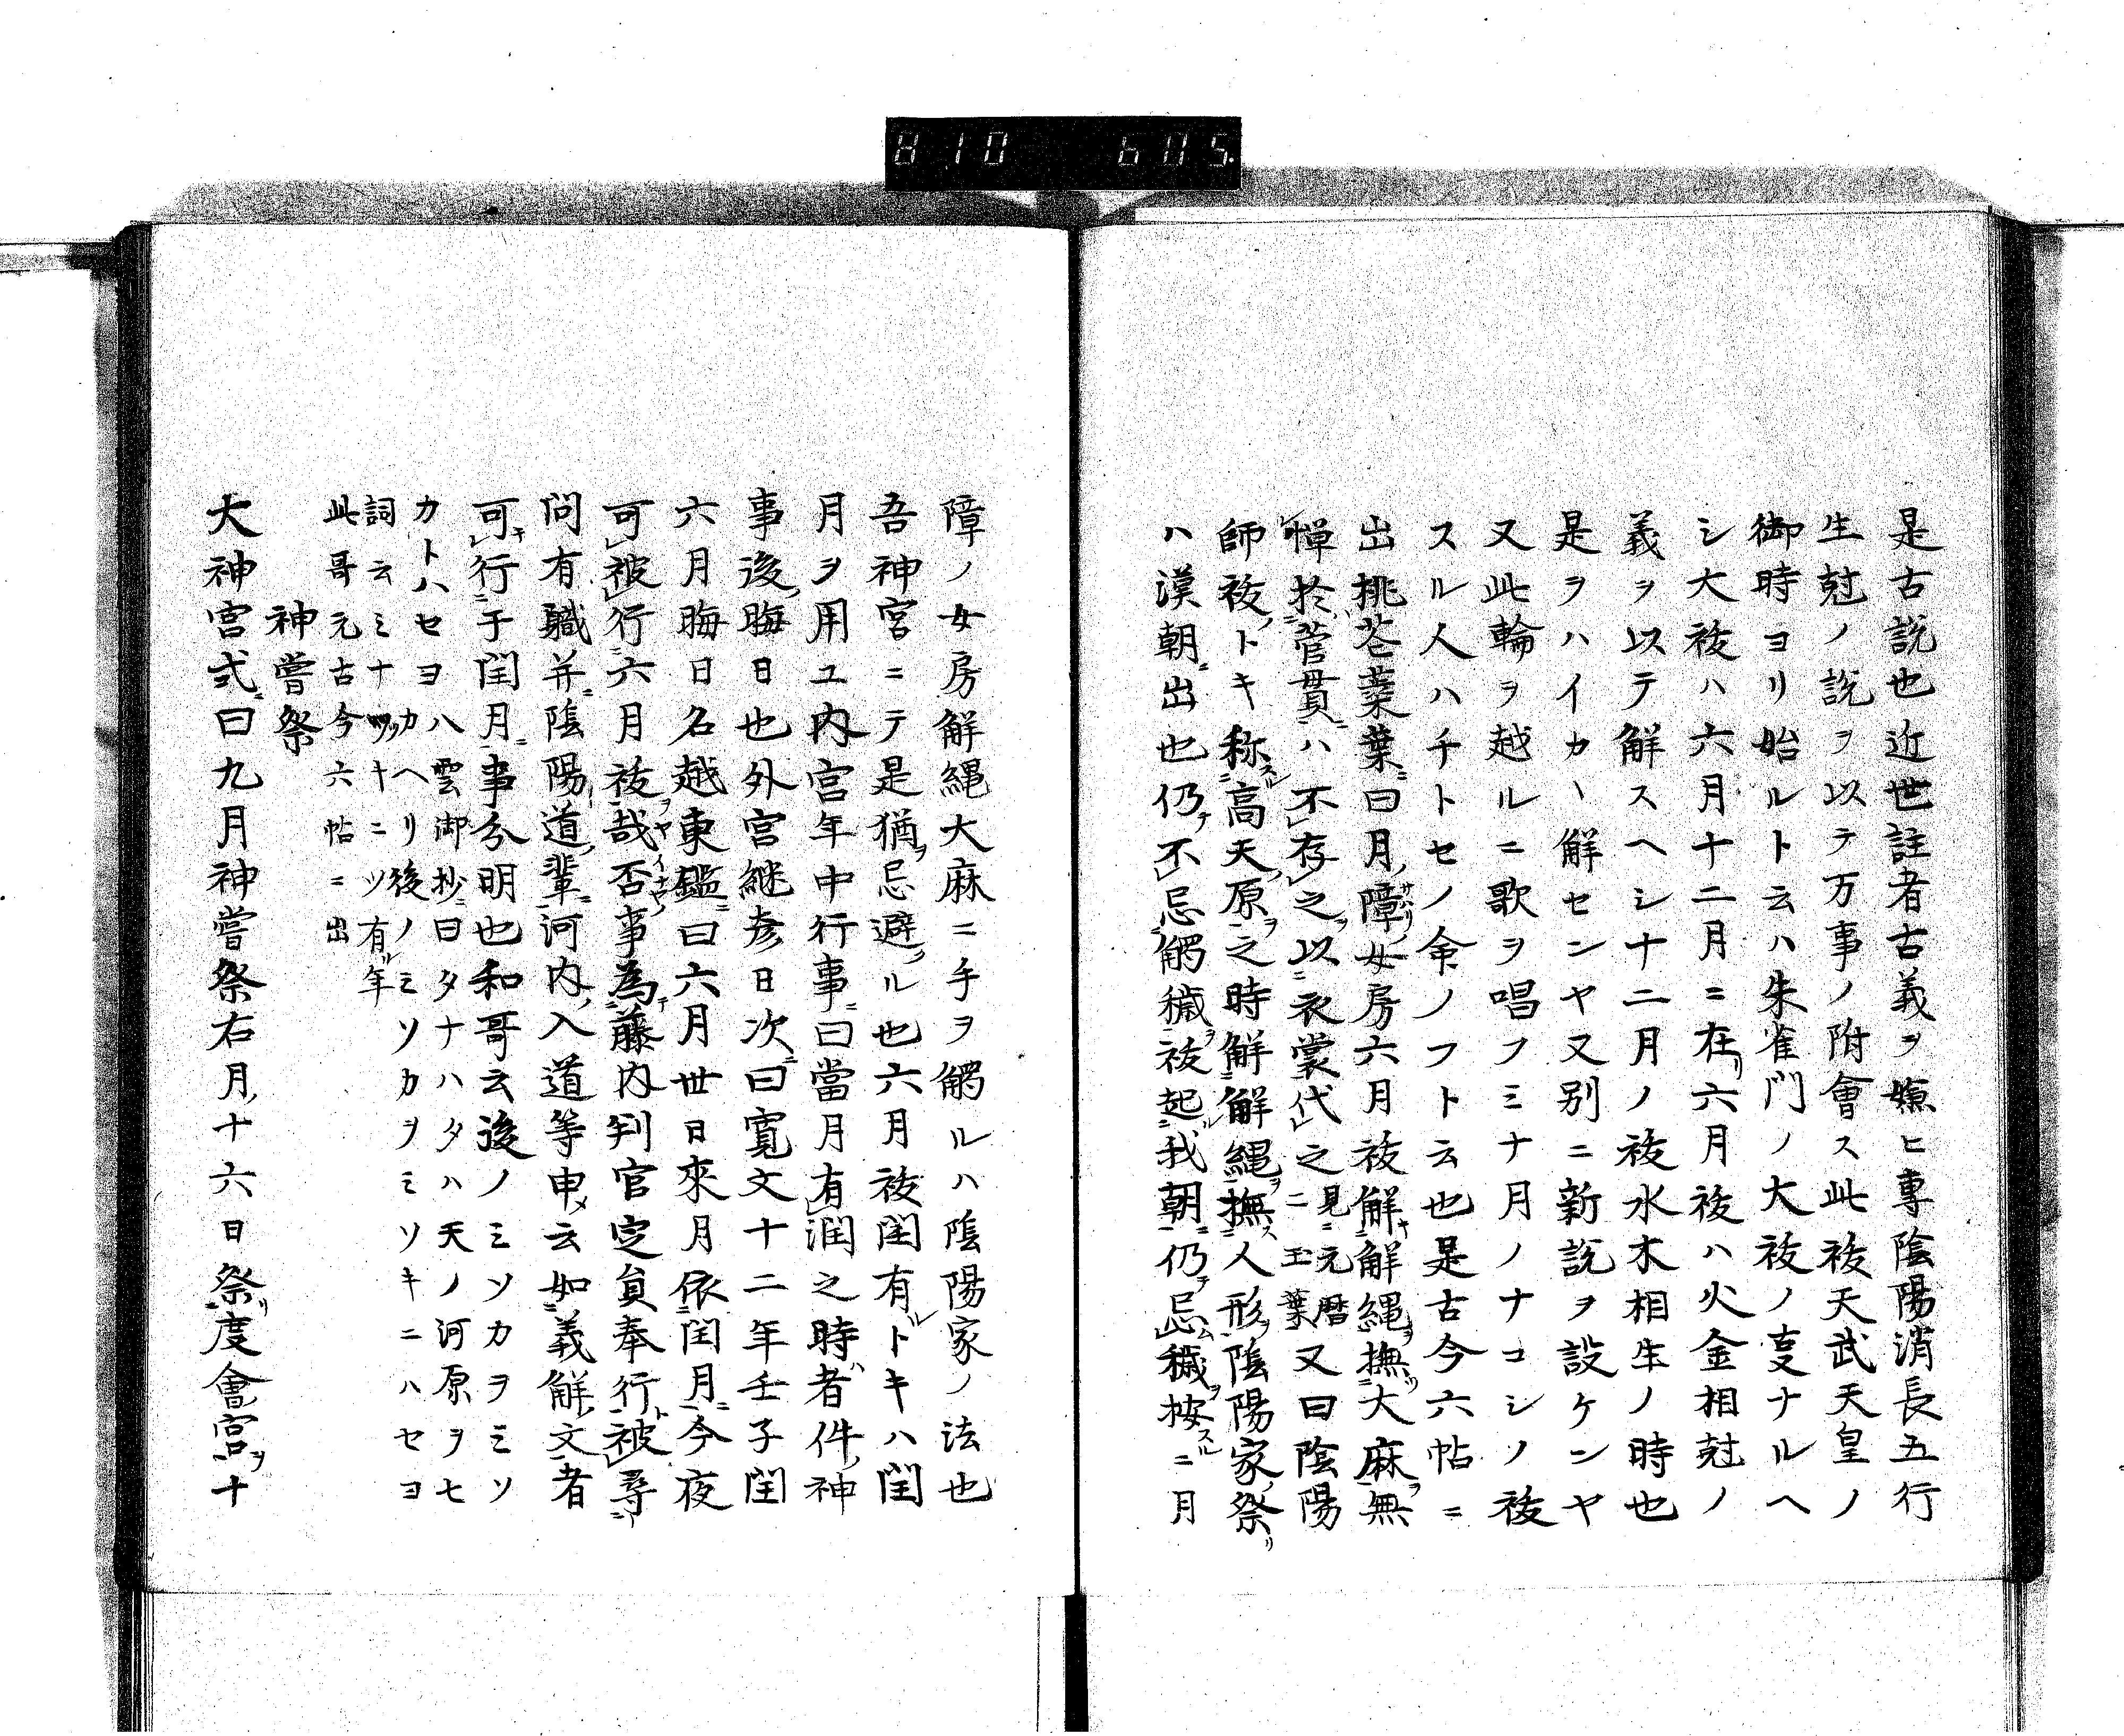 810 605.
是古説也近世註者古義ヲ嫌ヒ專陰陽消長五行
生尅ノ説ヲ以テ万事ノ附會ス此祓天武天皇ノ
御時ヨリ始ルト云ハ朱雀門ノ大祓ノ㕝ナルヘ
シ大祓ハ六月十二月ニ在リ六月祓ハ火金相尅ノ
義ヲ以テ解スヘシ十二月ノ祓水木相生ノ時也
是ヲハイカヽ解センヤ又別ニ新説ヲ設ケンヤ
又此輪ヲ越ルニ歌ヲ唱フミナ月ノナコシノ祓
スル人ハチトセノ命ノフト云也是古今六帖ニ
出桃花蘂葉ニ曰月ノ障ノ女房六月祓解キ解縄ヲ撫ツ大麻ヲ無
憚於菅貫ニハ不存之ヲ以衣裳代之ニ見元暦ニ玉葉又曰陰陽
師祓ノトキ称スル高天ノ原ヲ之時解解縄ヲ撫ス人形ヲ陰陽家ノ祭リ
ハ漢朝ニ出也仍テ不忌觸穢ヲ祓起ル我朝ニ仍テ忌ム穢ヲ按スルニ月
障ノ女房解縄大麻ニ手ヲ觸ルハ陰陽家ノ法也
吾神宮ニテ是猶ヲ忌避クル也六月祓閏有ルトキハ閏
月ヲ用ユ内宮年中行事ニ曰當月有潤之時ハ者件ノ神
事後ノ晦日也外宮継彦日次ニ曰寛文十二年壬子閏
六月晦日名越東鑑ニ曰六月丗日來月依閏月ニ今夜
可被行六月祓ヲヤ哉否イナヤノ事為テ藤内判官定員奉行ト被尋
問有職并ニ陰陽道ノ輩ニ河内ノ入道等申メ云如義解ノ文者
可キ行于閏月ニ事分明也和哥云後ノミソカヲミソ
カトハセヨ八雲御抄ニ曰タナハタハ天ノ河原ヲセ
カヘリ後ノミソカヲミソキニハセヨ
詞云ミナ月ヽ十ニツ有ル年
此哥元古今六帖ニ出
神嘗祭
大神宮式ニ曰九月神嘗祭右月ノ十六日祭リ度會ノ宮ヲ十